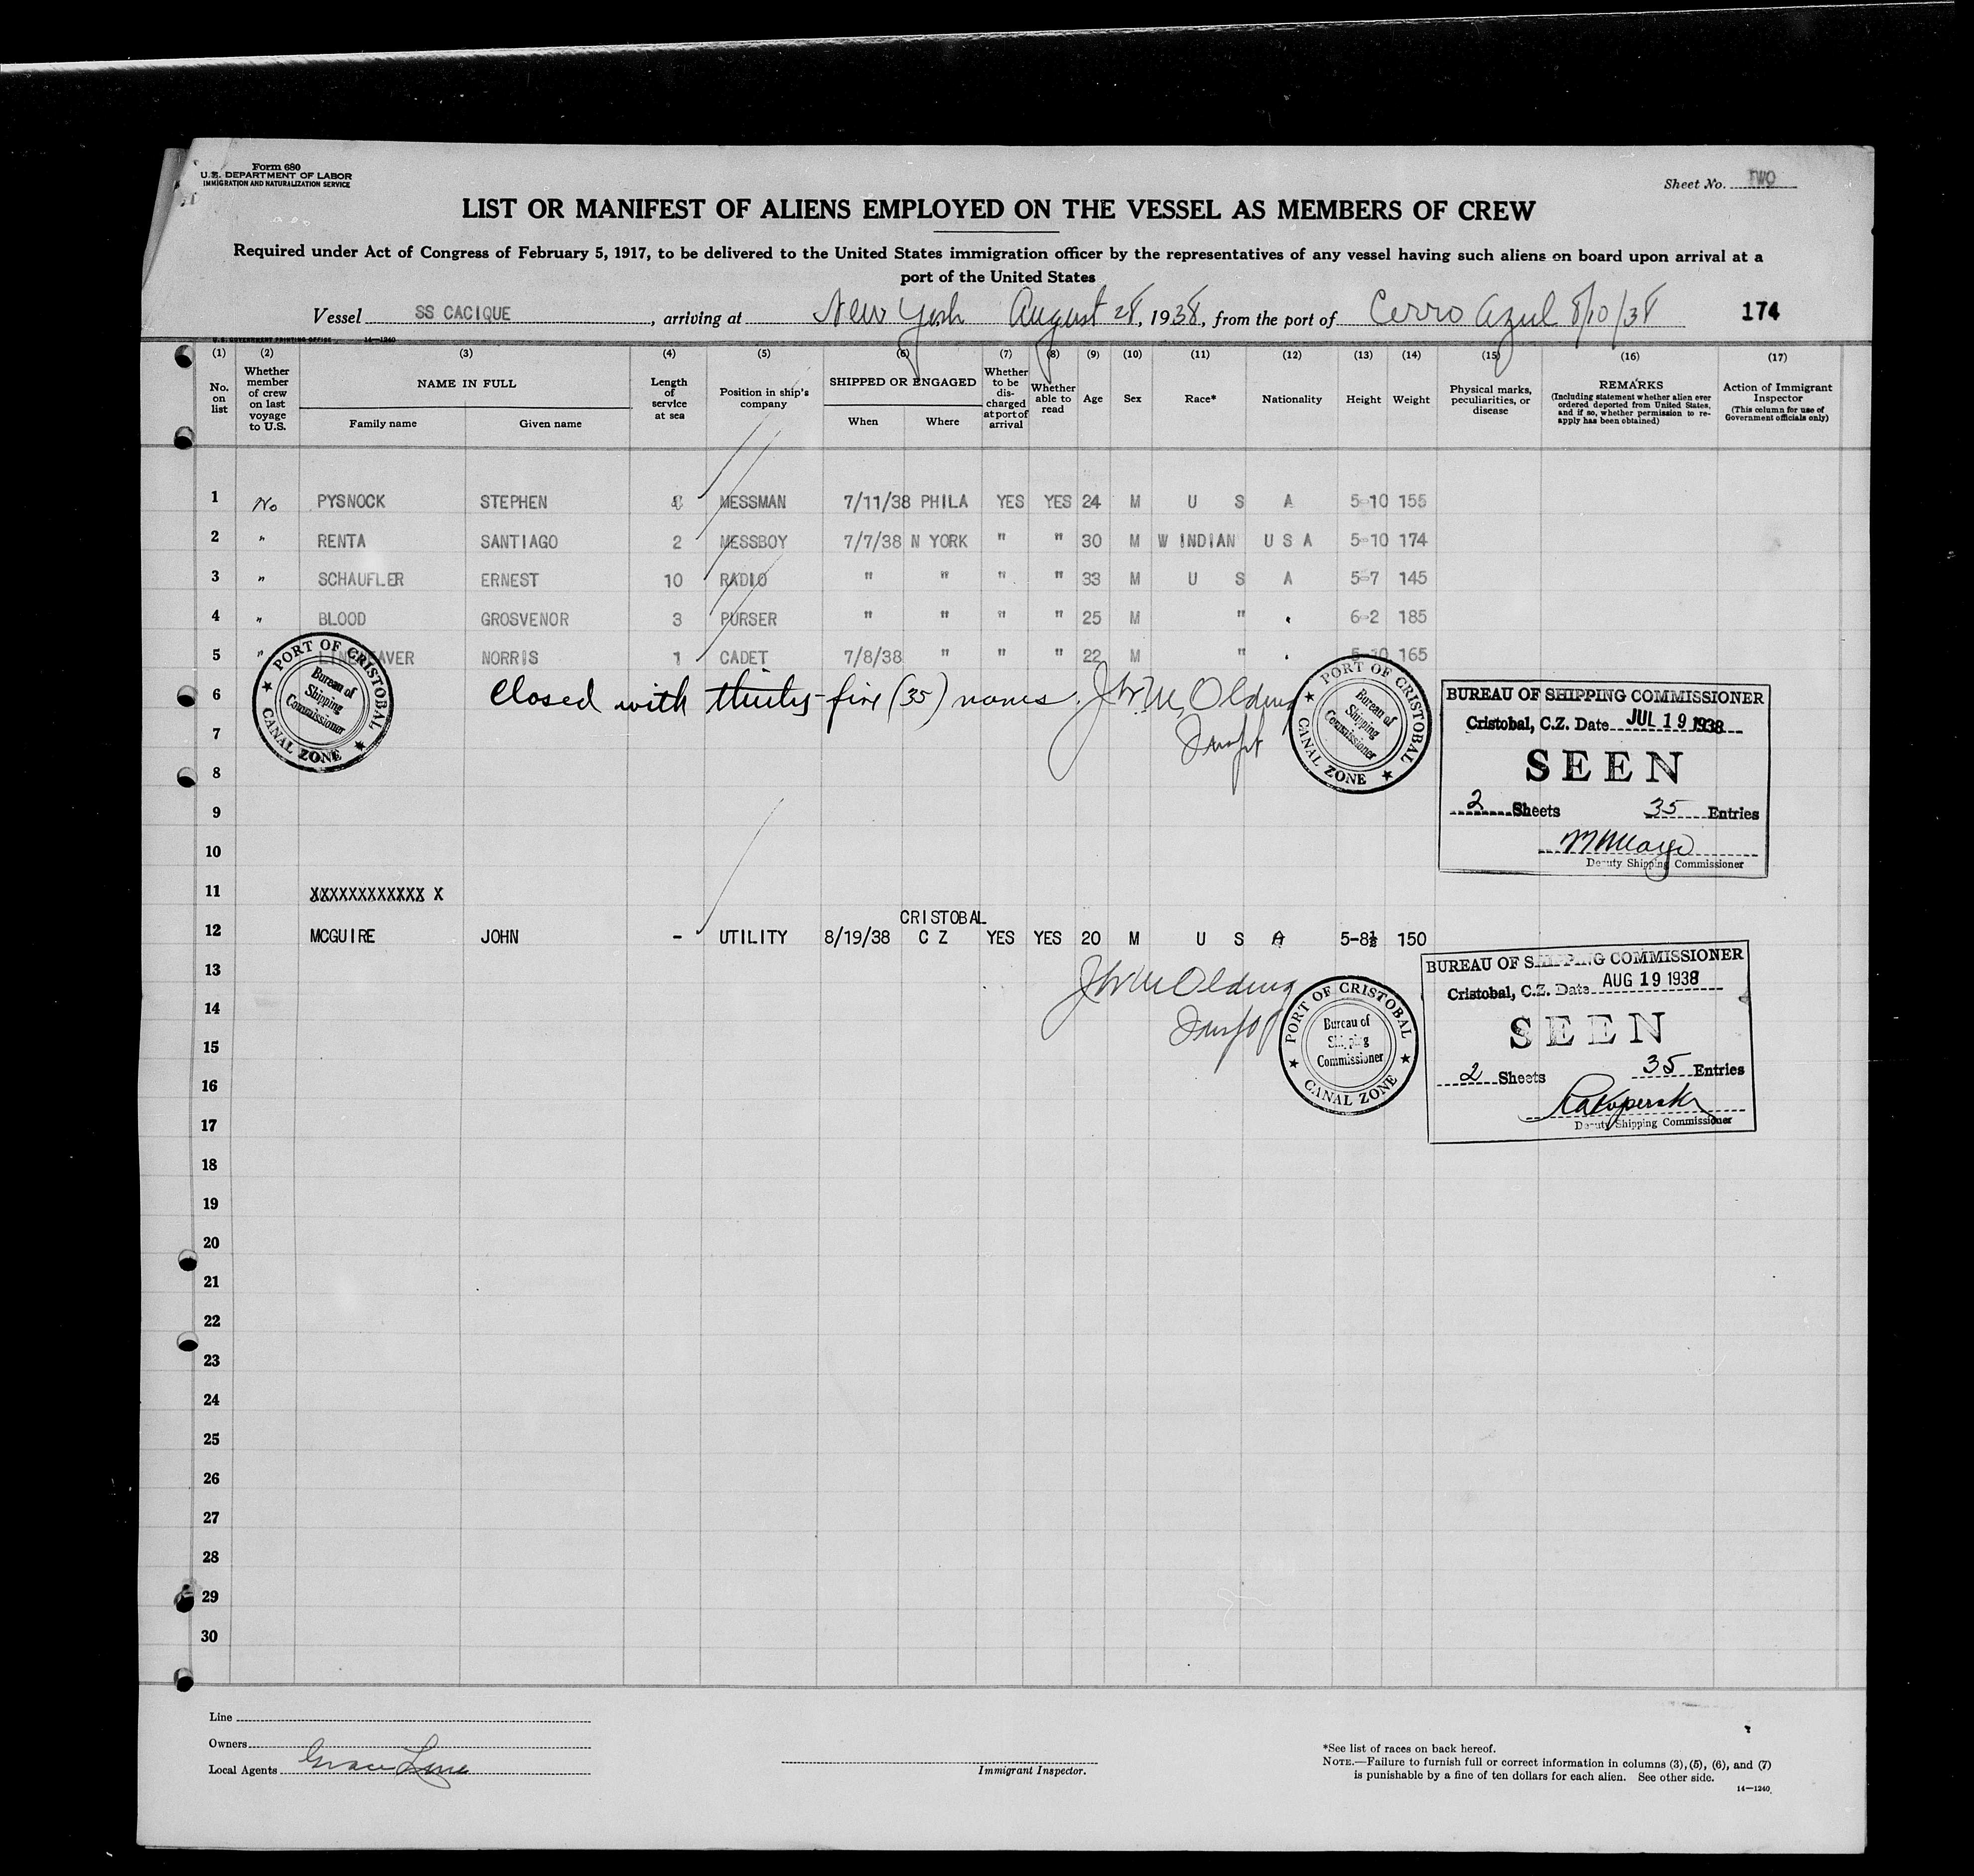 Form 680
U.S. DEPARTMENT OF LABOR
IMMIGRATION AND NATURALIZATION SERVICE
Sheet No. TWO
LIST OR MANIFEST OF ALIENS EMPLOYED ON THE VESSEL AS MEMBERS OF CREW
Required under Act of Congress of February 5, 1917, to be delivered to the United States immigration officer by the representatives of any vessel having such aliens on board upon arrival at a
port of the United States
Vessel SS CACIQUE, arriving at New York August 28, 1938, from the port of Cerro Azul 8/10/38 174
U.S. GOVERNMENT PRINTING OFFICE 14—1240
(1) (2) (3) (4) (5) (6) (7) (8) (9) (10) (11) (12) (13) (14) (15) (16) (17)
No. on list
Whether member of crew on last voyage to U.S.
NAME IN FULL
Family name
Given name
Length of service at sea
Position in ship's company
SHIPPED OR ENGAGED
When
Where
Whether to be discharged at port of arrival
Whether able to read
Age
Sex
Race*
Nationality
Height
Weight
Physical marks, peculiarities, or disease
REMARKS
(Including statement whether alien ever ordered deported from United States, and if so, whether permission to reapply has been obtained)
Action of Immigrant Inspector
(This column for use of Government officials only)
1 No PYSNOCK STEPHEN MESSMAN 7/11/38 PHILA YES YES 24 M U S A 5-10 155
2 " RENTA SANTIAGO 2 MESSBOY 7/7/38 N YORK " " 30 M W INDIAN U S A 5-10 174
3 " SCHAUFLER ERNEST 10 RADIO " " " " 33 M U S A 5-7 145
4 " BLOOD GROSVENOR 3 PURSER " " " " 25 M " " 6-2 185
5 " NORRIS 1 CADET 7/8/38 " " " 22 M " " 5-10 165
PORT OF CRISTOBAL
Bureau of
Shipping
Commissioner
CANAL ZONE
6 Closed with thirty-five (35) names.
7
PORT OF CRISTOBAL
Bureau of
Shipping
Commissioner
CANAL ZONE
BUREAU OF SHIPPING COMMISSIONER
Cristobal, C.Z. Date JUL 19 1938
SEEN
2 Sheets 35 Entries
Deputy Shipping Commissioner
8
9
10
11 XXXXXXXXXXXX X
CRISTOBAL
12 MCGUIRE JOHN - UTILITY 8/19/38 C Z YES YES 20 M U S A 5-8½ 150
13
14
PORT OF CRISTOBAL
Bureau of
Shipping
Commissioner
CANAL ZONE
BUREAU OF SHIPPING COMMISSIONER
Cristobal, C.Z. Date AUG 19 1938
SEEN
2 Sheets 35 Entries
Deputy Shipping Commissioner
15
16
17
18
19
20
21
22
23
24
25
26
27
28
29
30
Line
Owners
Local Agents Grace Line
Immigrant Inspector.
*See list of races on back hereof.
NOTE.—Failure to furnish full or correct information in columns (3), (5), (6), and (7)
is punishable by a fine of ten dollars for each alien. See other side.
14—1240